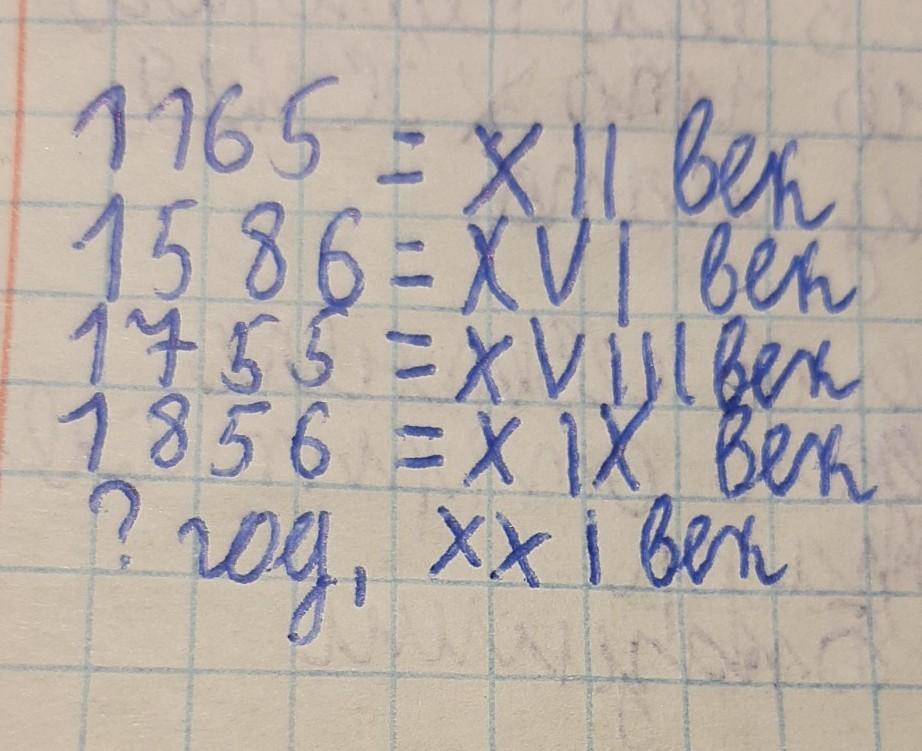 1165 = XII век
1586 = XVI век
1755 = XVIII век
1856 = XIX век
? год, XXI век